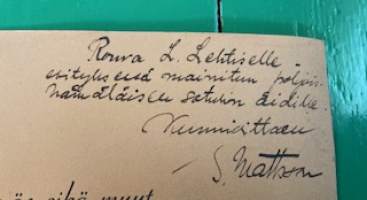 Rouva L. Lehtiselle
esityksessä mainitun pohjois-
hämäläisen soturin äidille.
Kunnioittaen
S. Mattsson